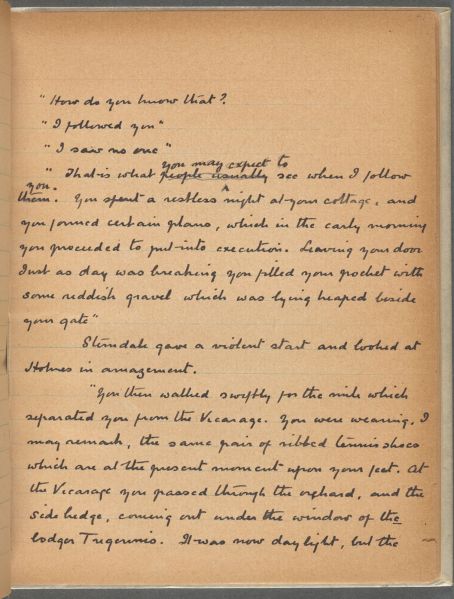 "How do you know that?
"I followed you"
"I saw no one"
you may expect to
"That is what people usually see when I follow
you.
them. You spent a restless night at your cottage, and
you formed certain plans, which in the early morning
you proceeded to put into execution. Leaving your door
Just as day was breaking you filled your pocket with
some reddish gravel which was lying heaped beside
your gate"
Sterndale gave a violent start and looked at
Holmes in amazement.
"You then walked swiftly for the mile which
separated you from the Vicarage. You were wearing, I
may remark, the same pair of ribbed tennis shoes
which are at the present moment upon your feet. At
the Vicarage you passed through the orchard, and the
side hedge, coming out under the window of the
lodger Tregennis. It was now daylight, but the